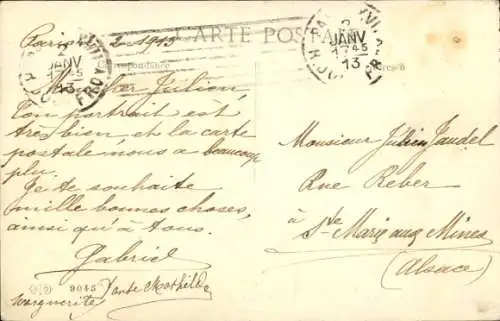 CARTE POSTALE
Paris 2 1913
Correspondance
JANV
13
JANV
17 45
13
Mon cher Julien
Ton portrait est
très bien et la carte
postale nous a beaucoup
plu.
Je te souhaite
mille bonnes choses,
ainsi qu'à tous.
Gabriel
9045
Marguerite Tante Mathilde
Monsieur Julien Jaudel
Rue Reber
à Ste Marie aux Mines
(Alsace)